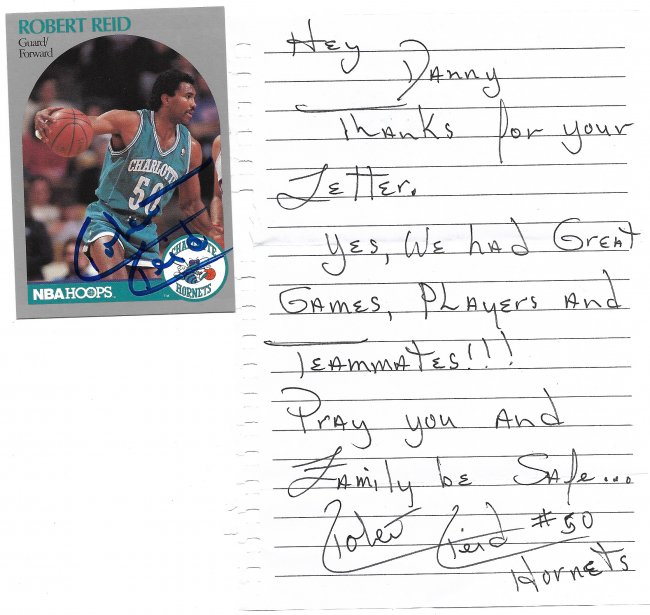 ROBERT REID
Guard/
Forward
CHARLOTTE
50
Robert
Reid
CHARLOTTE
HORNETS
NBA HOOPS
Hey
Danny
Thanks for your
Letter.
Yes, We had Great
Games, Players and
Teammates!!!
Pray you and
Family be Safe...
Robert Reid #50
Hornets